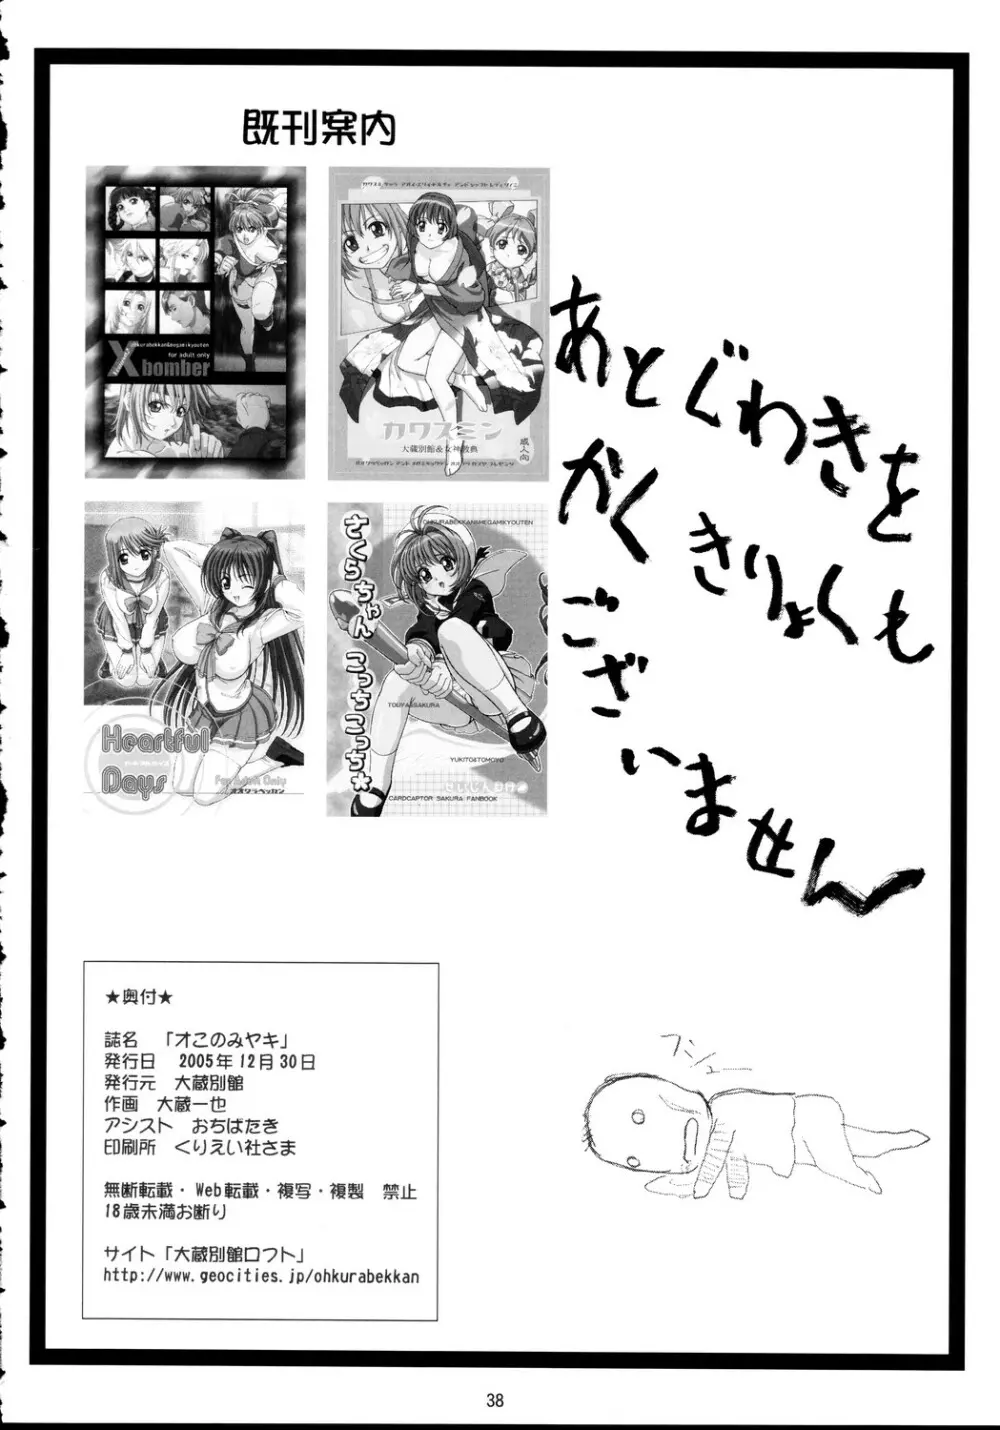 既刊案内
Xbomber
ohkurabekkan&megamikyouten
for adult only
カワスミン
大蔵別館&女神教典
成人向
Heartful
Days
For Adult Only
オオクラベッカン
OHKURABEKKAN&MEGAMIKYOUTEN
さくらちゃん こっちこっち★
TOUYA&SAKURA
YUKITO&TOMOYO
せいじんむけ
CARDCAPTOR SAKURA FANBOOK
あとぐわきを
かくきりょくも
ござ
いません
フシュー
★奥付★
誌名 「オこのみヤキ」
発行日 2005年12月30日
発行元 大蔵別館
作画 大蔵一也
アシスト おちばたき
印刷所 くりえい社さま
無断転載・Web転載・複写・複製 禁止
18歳未満お断り
サイト「大蔵別館ロフト」
http://www.geocities.jp/ohkurabekkan
38